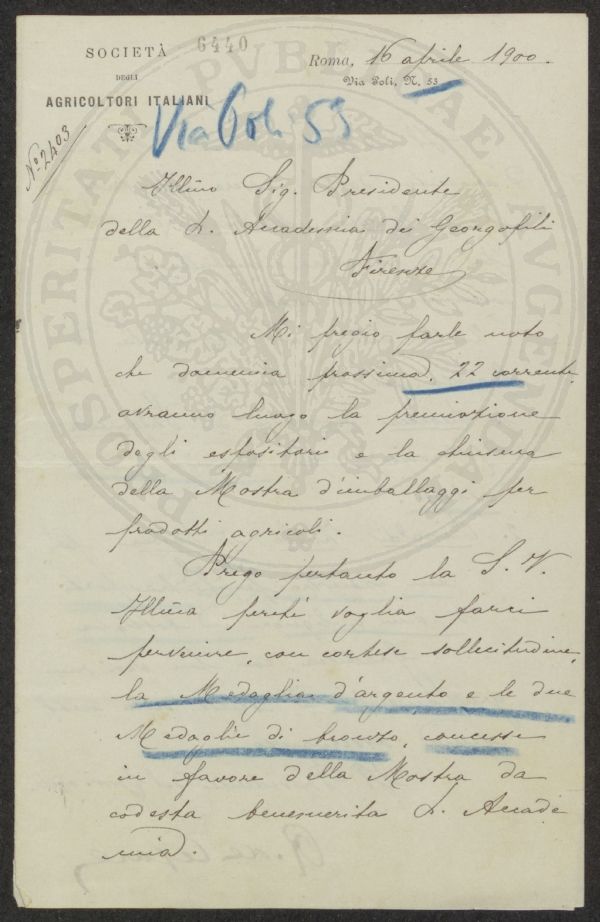 SOCIETÀ
DEGLI
AGRICOLTORI ITALIANI
6440
Roma, 16 aprile 1900.
Via Poli, N. 53
Via Poli 53
Nº 2403
PROSPERITATI PVBLICAE AVGENDAE
Illmo Sig. Presidente
della R. Accademia dei Georgofili
Firenze
Mi pregio farle noto
che domenica prossima, 22 corrente,
avranno luogo la premiazione
degli espositori e la chiusura
della Mostra d'imballaggi per
prodotti agricoli.
Prego pertanto la S. V.
Illma perchè voglia farci
pervenire, con cortese sollecitudine,
la Medaglia d'argento e le due
Medaglie di bronzo, concesse
in favore della Mostra da
codesta benemerita R. Accade
mia.